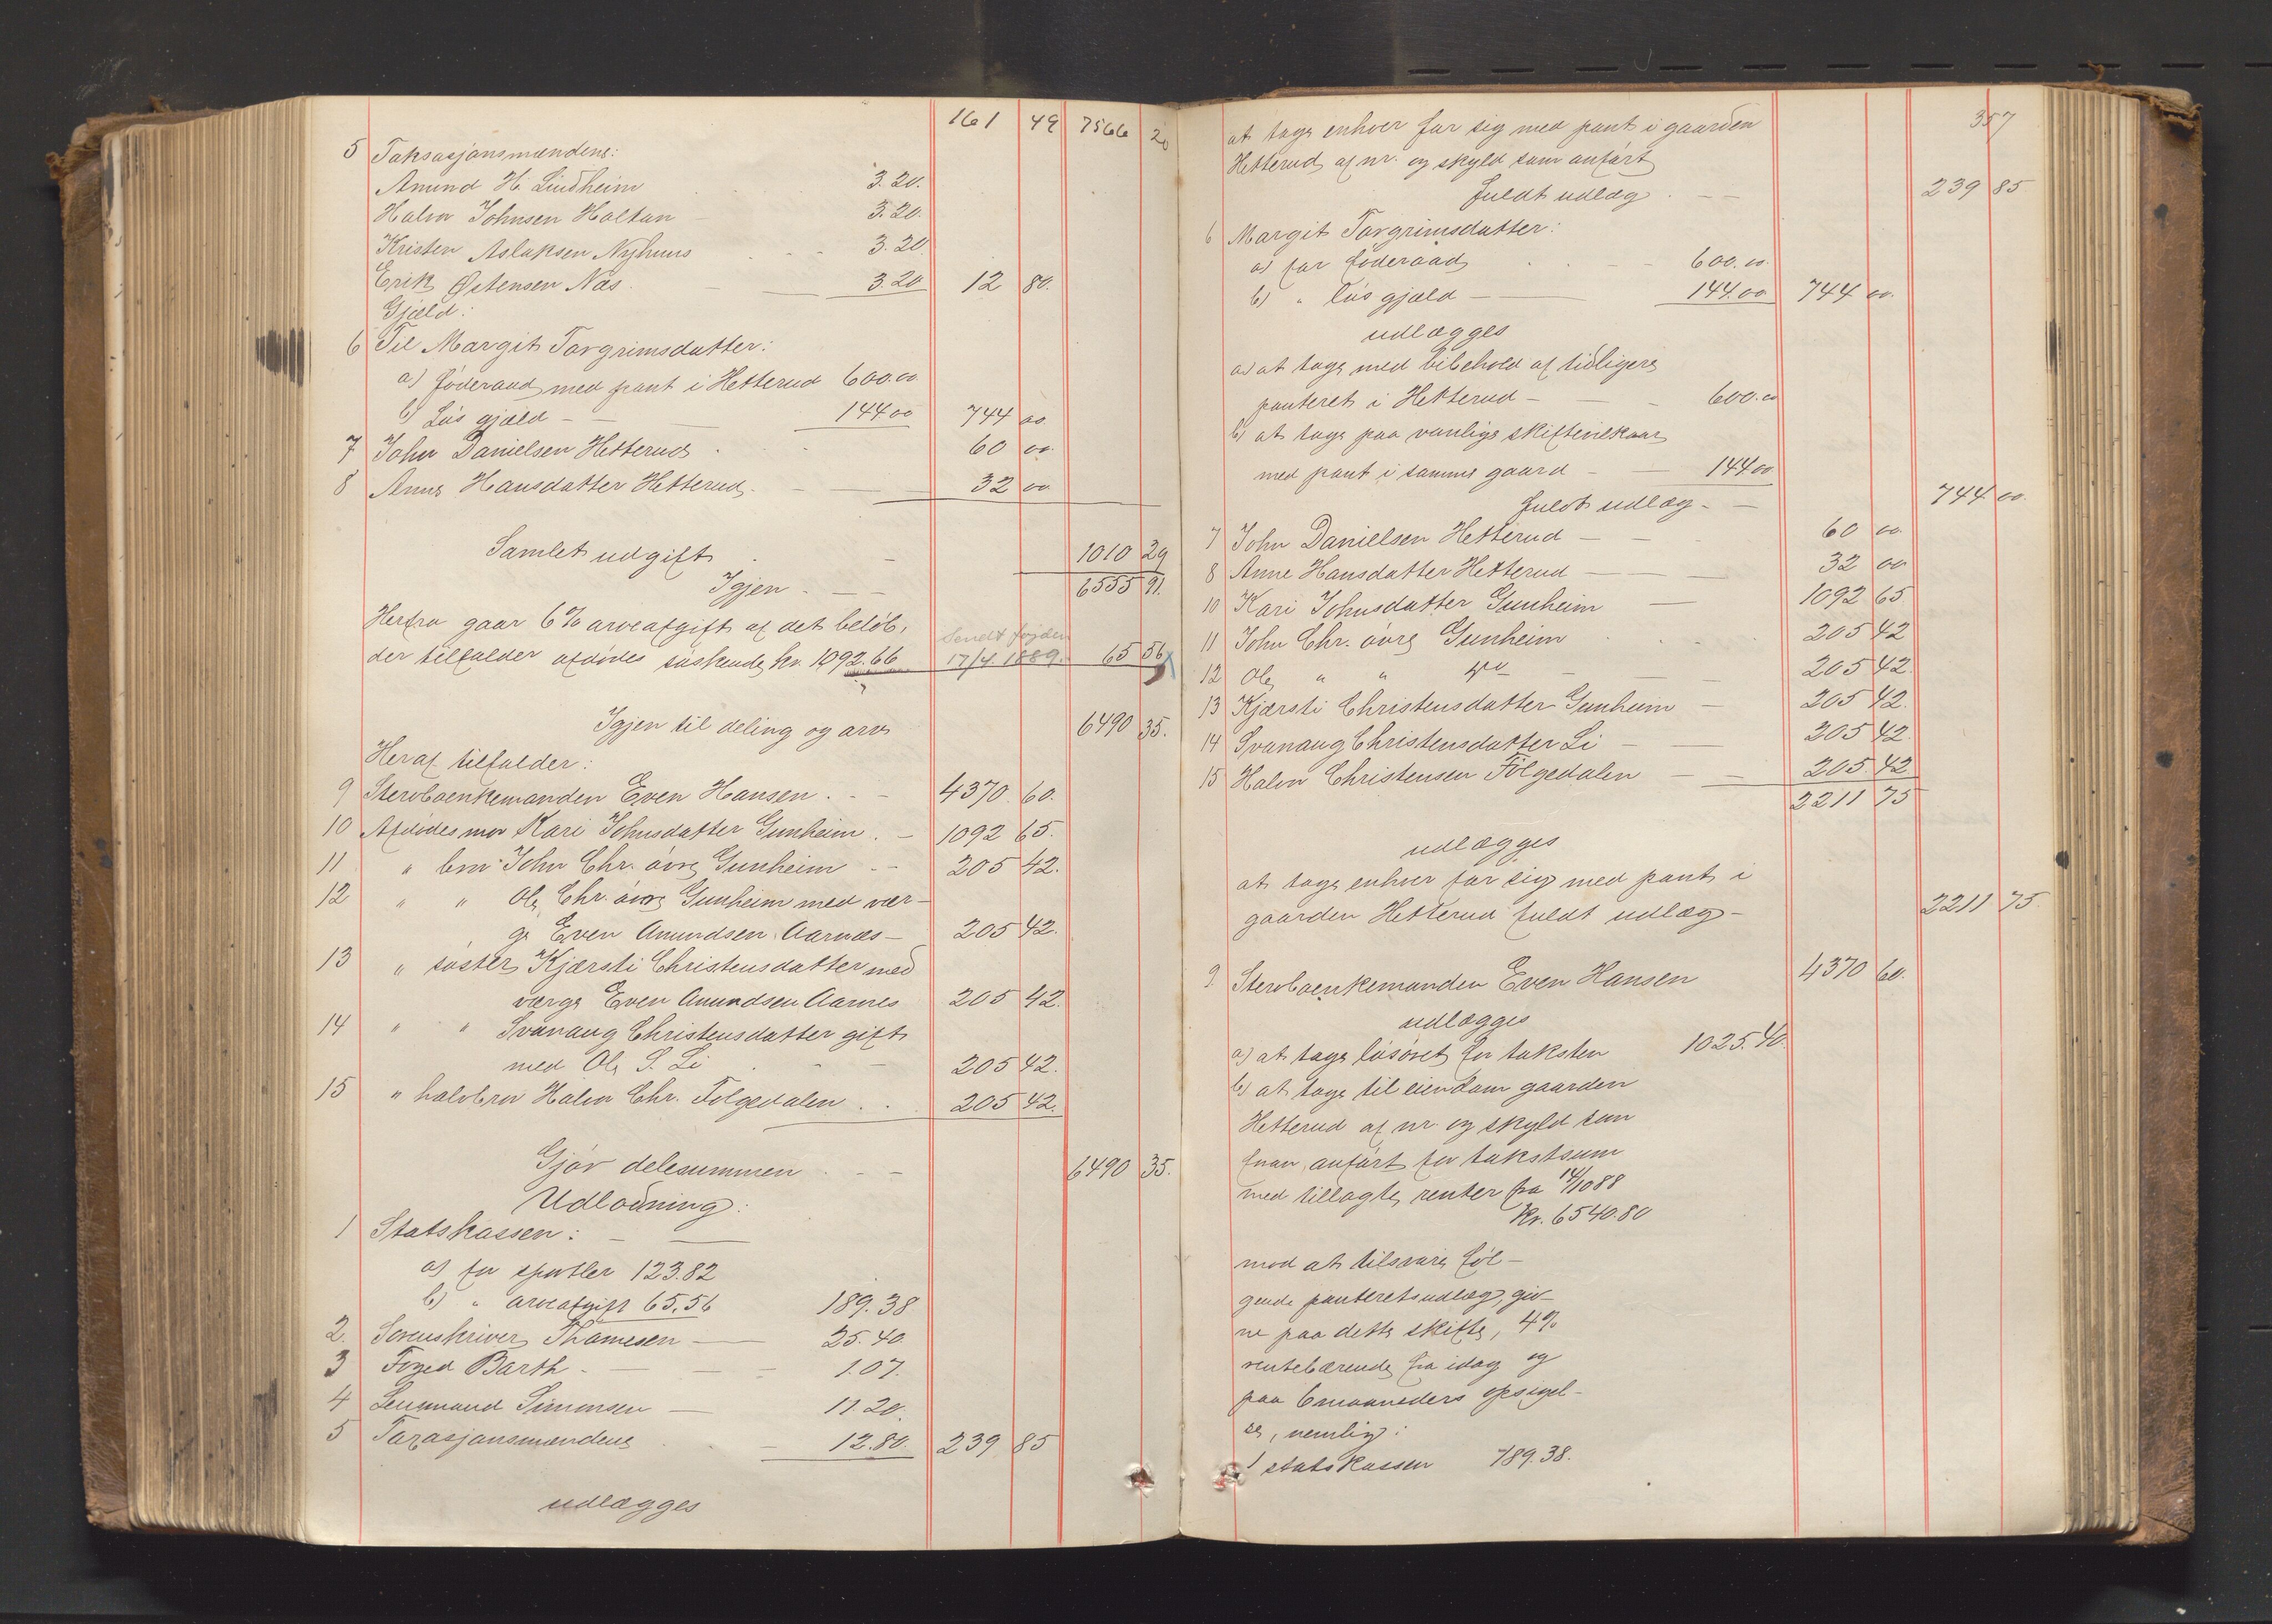 161 49 7566 20
5 Taksasjonsmændene:
Amund H. Lindheim 3.20.
Halvor Johnsen Haltan 3.20.
Kristen Aslaksen Nyhuus 3.20
Erik Østensen Nas. 3.20 12 80.
Gjæld:
6 Til Margit Torgrimsdatter:
a) föderaad med pant i Hetterud 600.00
b) Lös gjæld 144.00 744 00
7 John Danielsen Hetterud 60 00.
8 Anne Hansdatter Hetterud 32 00
Samlet udgift 1010 29
Igjen 6555 91.
Herfra gaar 6% arveafgift af det belöb,
der tilfalder afdödes söskende kr. 1092.66 Sendt fogden 17/4. 1889. 65 56
Igjen til deling og arv 6490 35.
Heraf tilfalder:
9 Stervboenkemanden Even Hansen. 4370 60.
10 Afdödes mor Kari Johnsdatter Gunheim 1092 65.
11 " bror John Chr. övre Gunheim 205 42.
12 " " Ole Chr. övre Gunheim med vær-
ge Even Amundsen Aarnæs 205 42.
13 " söster Kjærsti Christensdatter med
værge Even Amundsen Aarnes 205 42.
14 " " Svanaug Christensdatter gift
med Ole S. Li 205 42.
15 " halvbror Halvor Chr. Folgedalen 205 42.
Gjör delesummen 6490 35.
Udlodning:
1 Statskassen:
a) for sportler 123.82
b) " arveafgift 65.56 189.38
2. Sorenskriver Thomesen 25.40.
3 Foged Barth 1.07.
4 Lensmand Simonsen 11.20.
5 Taxasjonsmændene 12.80. 239 85
udlægges
357
at tage enhver for sig med pant i gaarden
Hetterud af nr. og skyld som anfört
fuldt udlæg 239 85
6 Margit Torgrimsdatter:
a) for föderaad 600.00.
b) " lös gjæld 144.00 744 00.
udlægges
a) at tage med bibehold af tidligere
panteret i Hetterud 600.00
b) at tage paa vanlige skiftevilkaar
med pant i samme gaard 144.00
fuldt udlæg 744 00.
7 John Danielsen Hetterud 60 00.
8 Anne Hansdatter Hetterud 32 00
10 Kari Johnsdatter Gunheim 1092 65
11 John Chr. övre Gunheim 205 42
12 Ole " " 205 42.
13 Kjærsti Christensdatter Gunheim 205 42.
14 Svanaug Christensdatter Li 205 42.
15 Halvor Christensen Folgedalen 205 42
2211 75
udlægges
at tage enhver for sig med pant i
gaarden Hetterud fuldt udlæg 2211 75.
9. Stervboenkemanden Even Hansen 4370 60.
udlægges
a) at tage lösöret for taksten 1025.40.
b) at tage til eiendom gaarden
Hetterud af nr. og skyld som
foran anfört for takstsum
med tillagte renter fra 14/10 88
Kr. 6540.80
mod at tilsvare föl-
gende panteretsudlæg, giv-
ne paa dette skifte, 4%
rentebærende fra idag og
paa 6 maaneders opsigel-
se, nemlig:
1 statskassen 189.38.